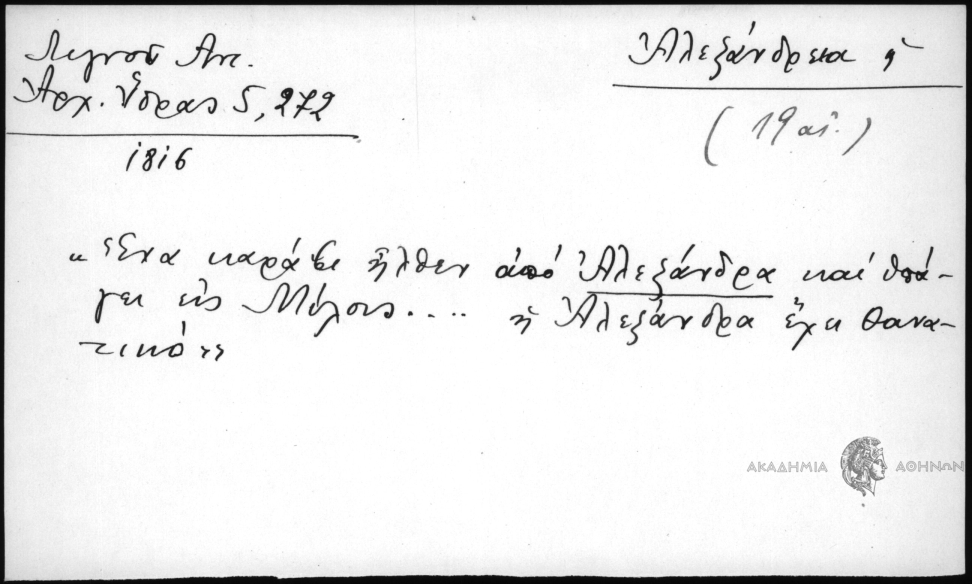 Λιγνοῦ Αντ.
Ἀρχ. Ὕδρας 5, 272
1816
Ἀλεξάνδρεια ἡ
(19 αἰ.)
« Ἕνα καράβι ἦλθεν ἀπό Ἀλεξάνδρα καί ὑπά-
γει εἰς Μύλους.... ἡ Ἀλεξάνδρα ἔχει θανα-
τικό»
ΑΚΑΔΗΜΙΑ ΑΘΗΝΩΝ